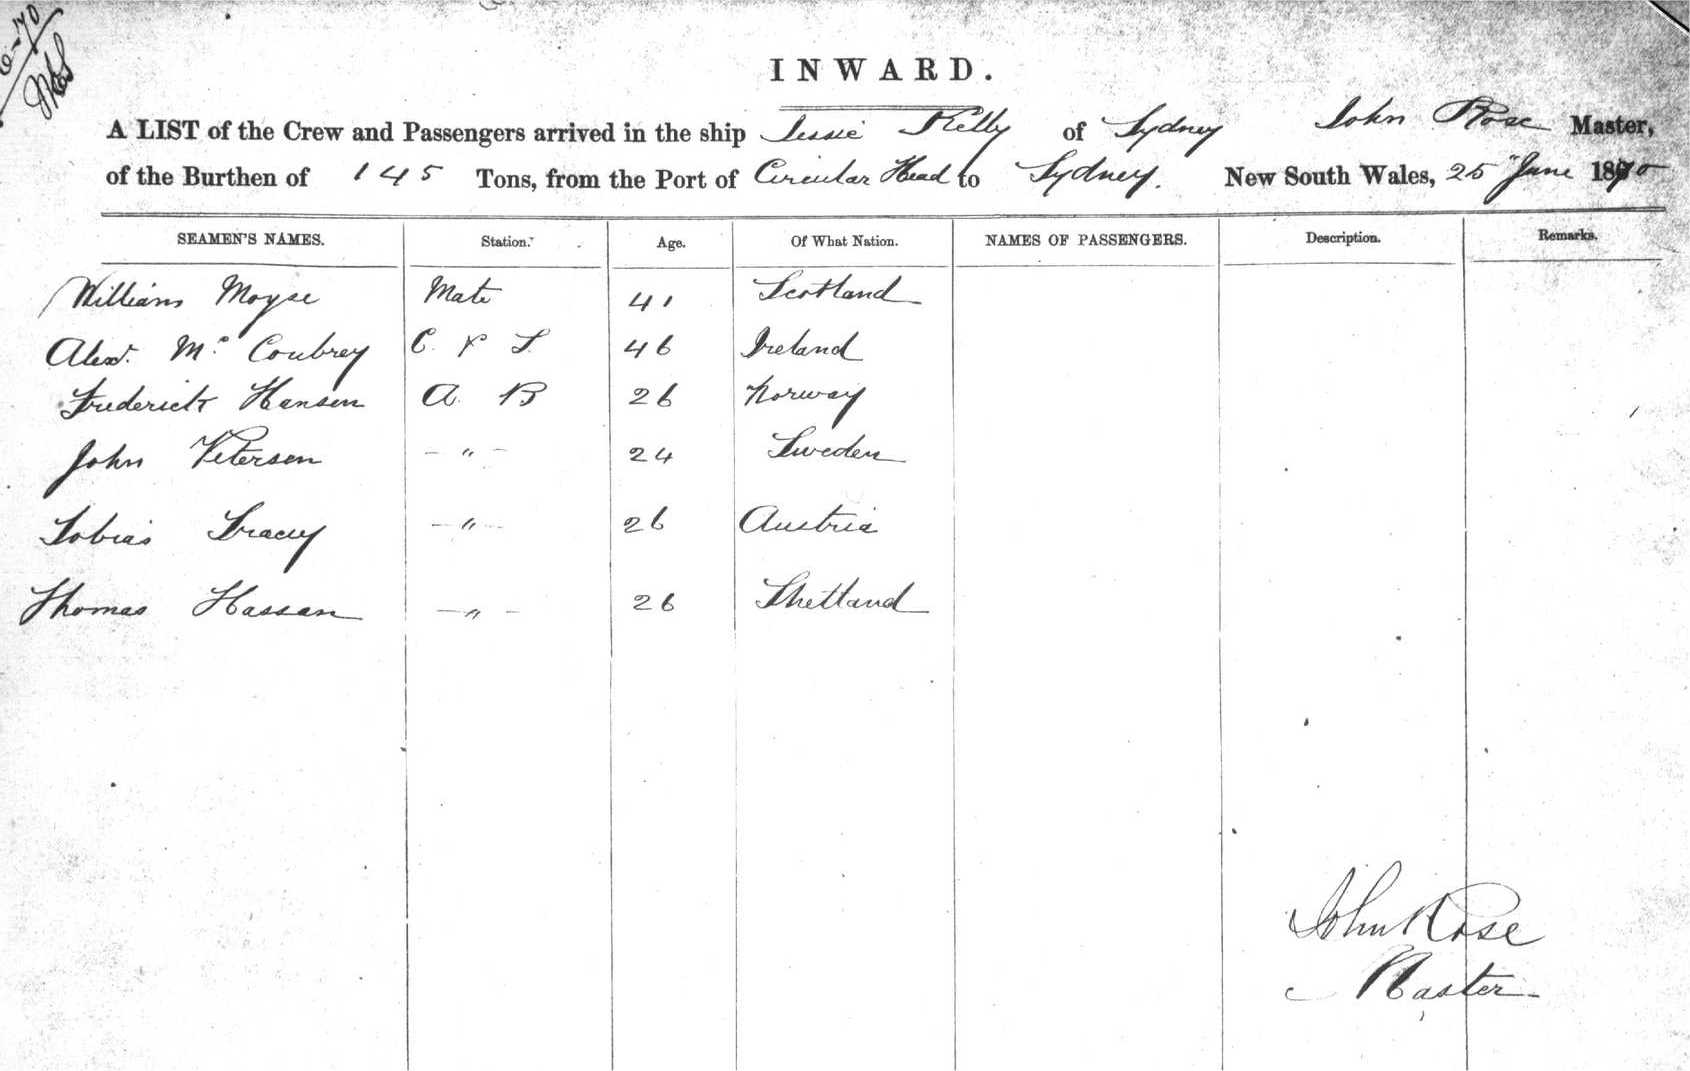 6-70
INWARD.
A LIST of the Crew and Passengers arrived in the ship Jessie Kelly of Sydney John Rose Master,
of the Burthen of 145 Tons, from the Port of Circular Head to Sydney. New South Wales, 25" June 1870
SEAMEN'S NAMES. Station. Age. Of What Nation. NAMES OF PASSENGERS. Description. Remarks.
William Moyse Mate 41 Scotland
Alexr. Mc Coubrey C & S 46 Ireland
Frederick Hansen A. B 26 Norway
John Petersen -"- 24 Sweden
Tobias Tracey -"- 26 Austria
Thomas Hassan -"- 26 Shetland
John Rose
Master